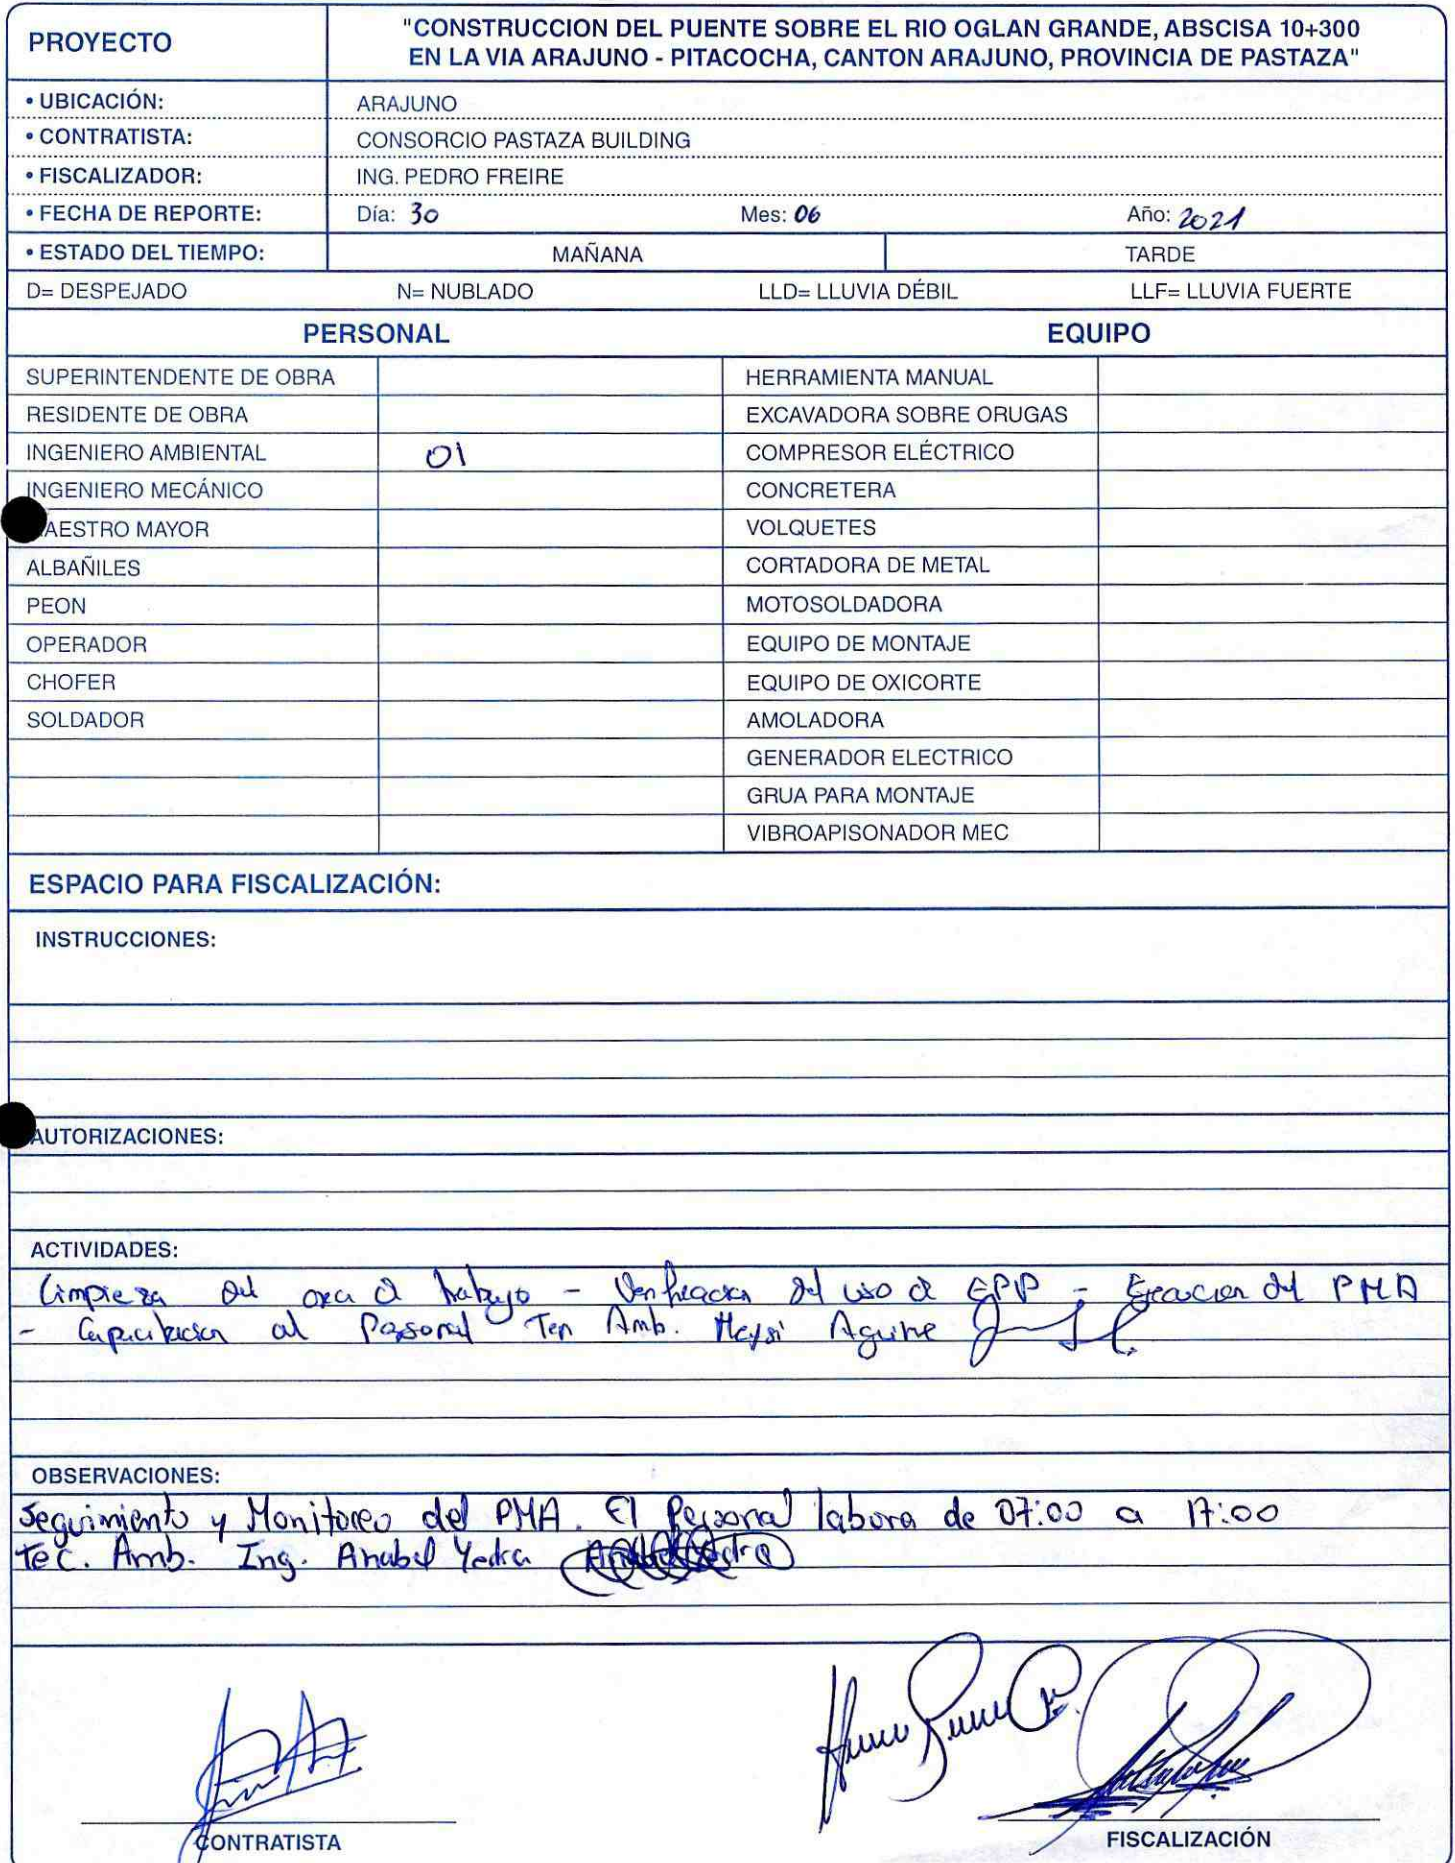 PROYECTO
"CONSTRUCCION DEL PUENTE SOBRE EL RIO OGLAN GRANDE, ABSCISA 10+300
EN LA VIA ARAJUNO - PITACOCHA, CANTON ARAJUNO, PROVINCIA DE PASTAZA"
• UBICACIÓN: ARAJUNO
• CONTRATISTA: CONSORCIO PASTAZA BUILDING
• FISCALIZADOR: ING. PEDRO FREIRE
• FECHA DE REPORTE: Día: 30 Mes: 06 Año: 2021
• ESTADO DEL TIEMPO: MAÑANA TARDE
D= DESPEJADO N= NUBLADO LLD= LLUVIA DÉBIL LLF= LLUVIA FUERTE
PERSONAL EQUIPO
SUPERINTENDENTE DE OBRA HERRAMIENTA MANUAL
RESIDENTE DE OBRA EXCAVADORA SOBRE ORUGAS
INGENIERO AMBIENTAL 01 COMPRESOR ELÉCTRICO
INGENIERO MECÁNICO CONCRETERA
AESTRO MAYOR VOLQUETES
ALBAÑILES CORTADORA DE METAL
PEON MOTOSOLDADORA
OPERADOR EQUIPO DE MONTAJE
CHOFER EQUIPO DE OXICORTE
SOLDADOR AMOLADORA
GENERADOR ELECTRICO
GRUA PARA MONTAJE
VIBROAPISONADOR MEC
ESPACIO PARA FISCALIZACIÓN:
INSTRUCCIONES:
AUTORIZACIONES:
ACTIVIDADES:
Limpieza del area de trabajo - Verificacion del uso de EPP - Ejecucion del PMA
- Capacitacion al Personal Amb. Aguirre
OBSERVACIONES:
Seguimiento y Monitoreo del PMA. El Personal labora de 07:00 a 17:00
Tec. Amb. Ing. Anabel Yedra
CONTRATISTA FISCALIZACIÓN